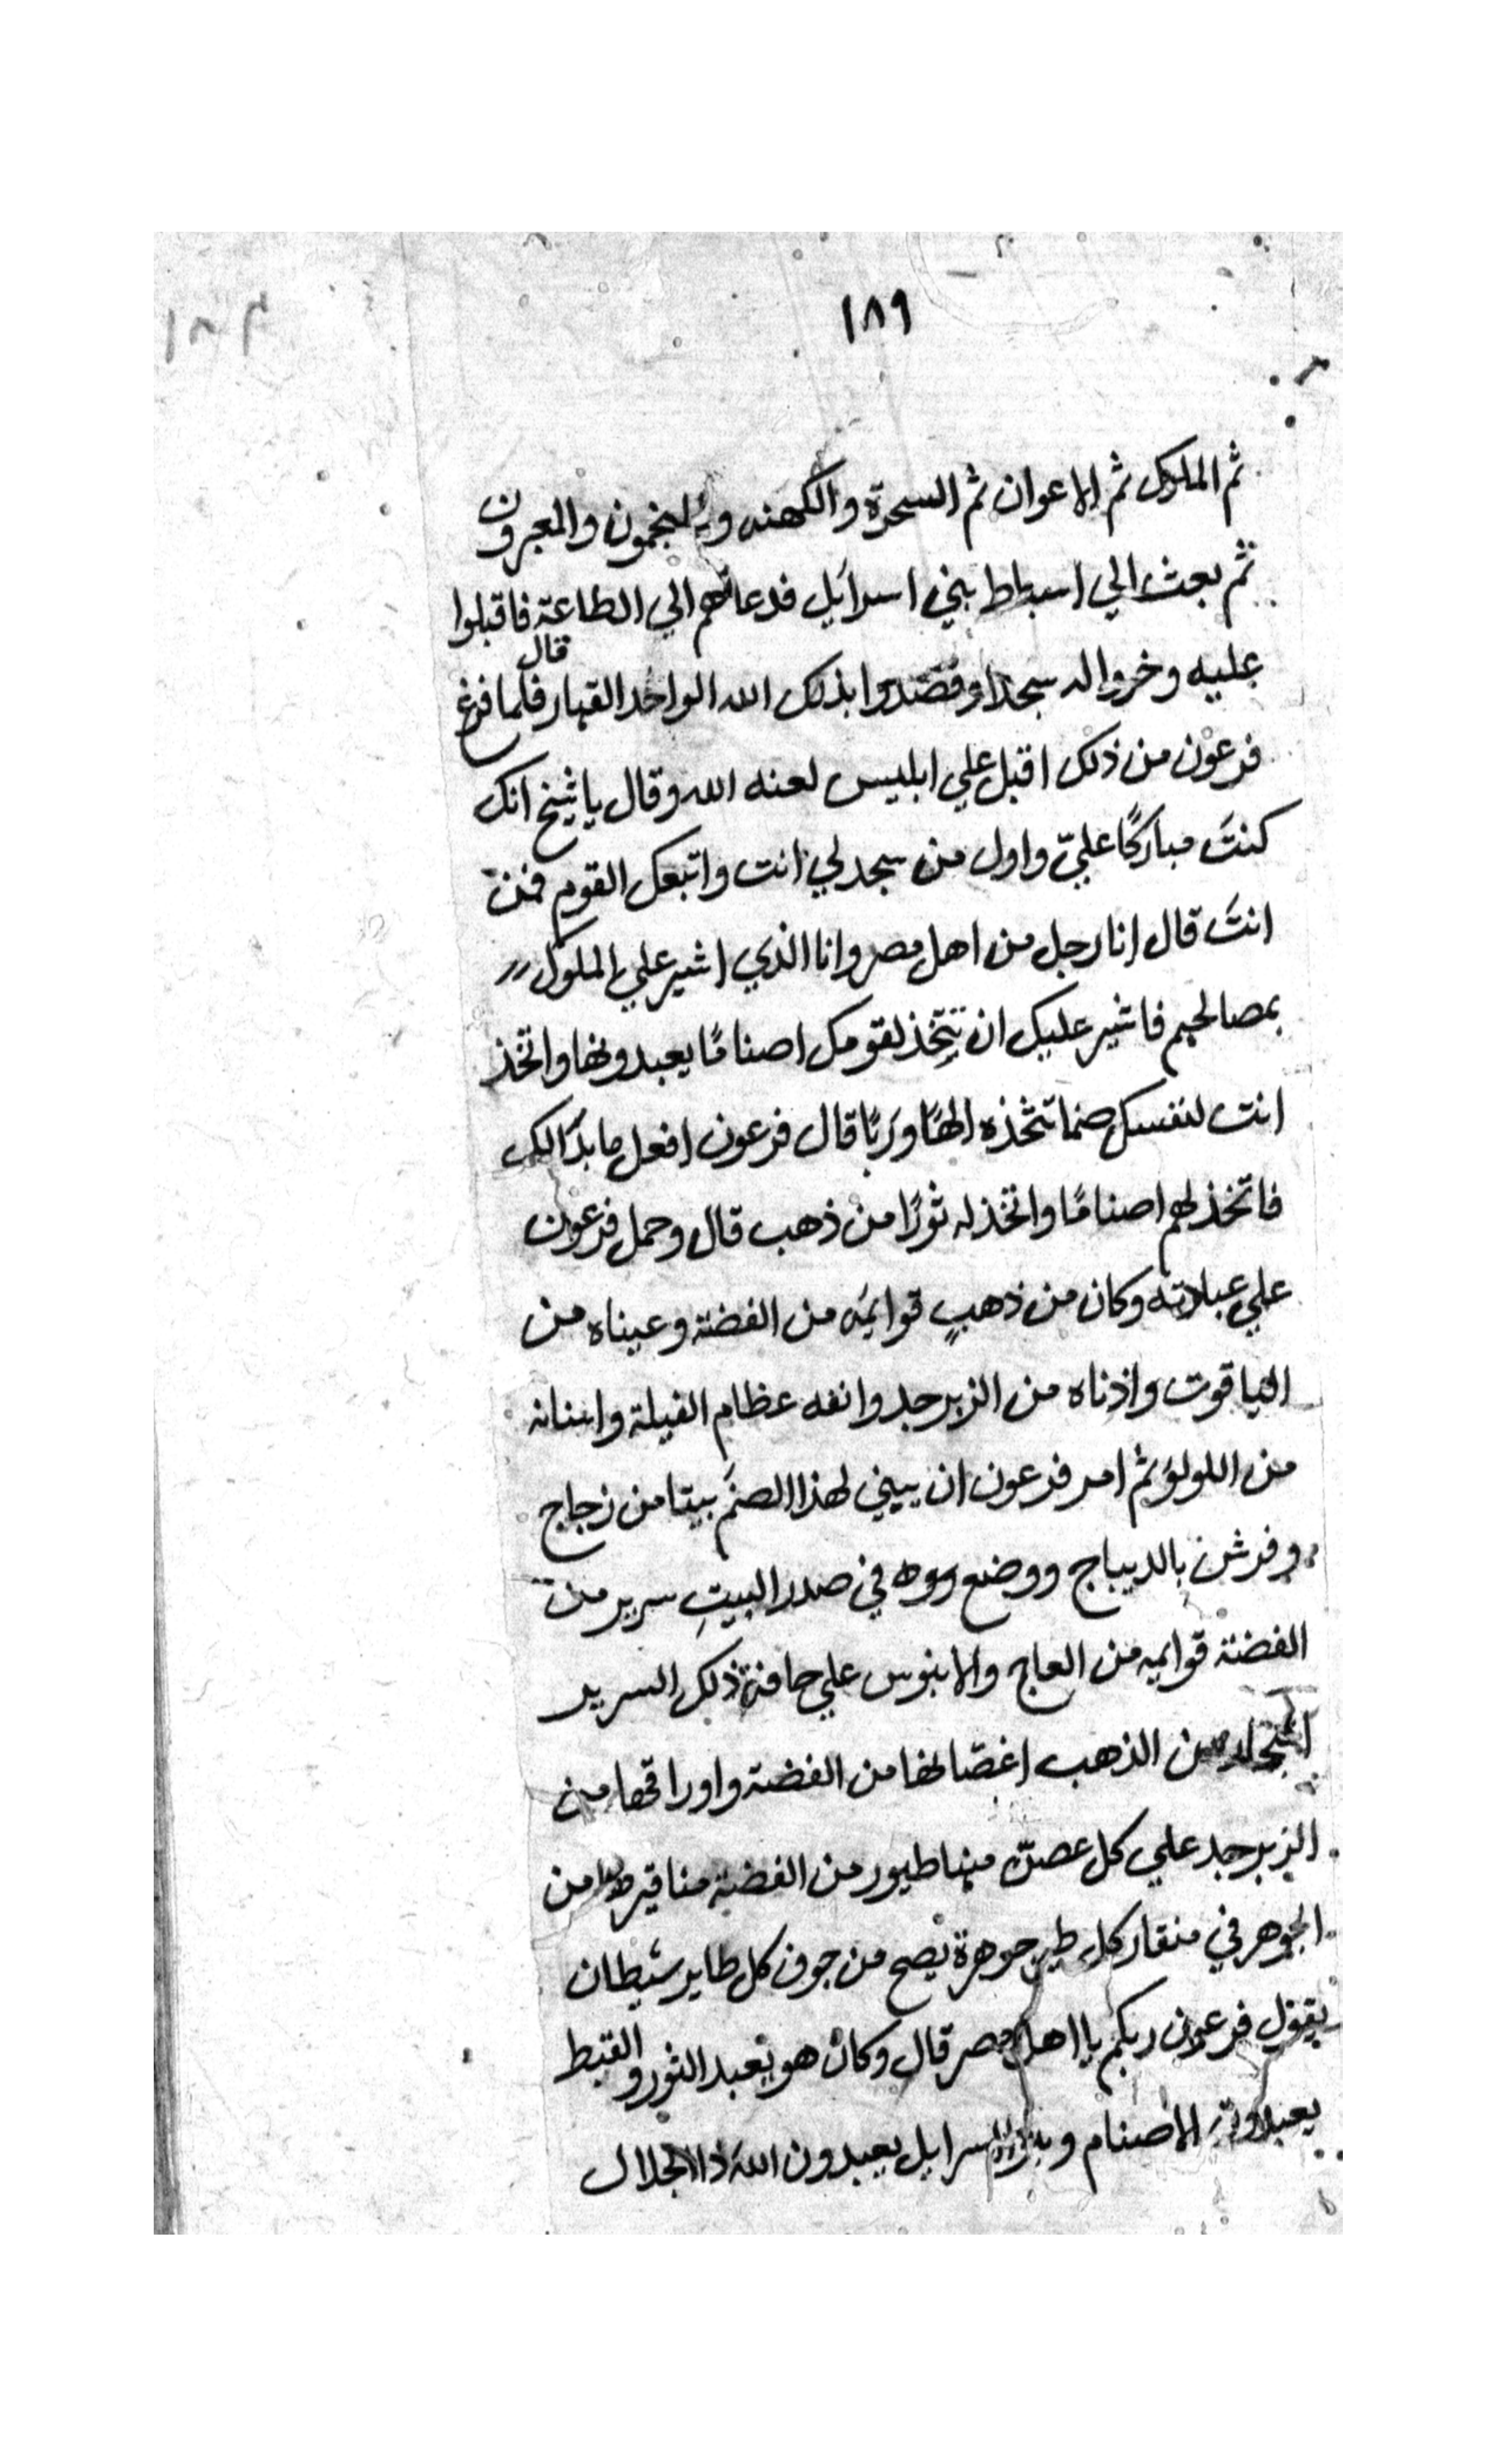 ١٨٩
ثم الملوك ثم الاعوان ثم السحرة والكهنه والمنجمون والمعبرون
ثم بعث الي اسباط بني اسرآيل فدعاهم الي الطاعة فاقبلوا
عليه وخروا له سجدا وقصدوا بذلك الله الواحد القهار قال فلما فرغ
فرعون من ذلك اقبل علي ابليس لعنه الله وقال يا شيخ انك
كنتَ مباركًا عليّ واول من سجد لي انت واتبعك القوم فمن
انتَ قال انا رجل من اهل مصر وانا الذي اشير علي الملوك
بمصالحهم فاشير عليك ان تتخِّذ لقومك اصنامًا يعبدونها واتخذ
انت لنفسك صنما تتخذه الهًا وربًا قال فرعون افعل ما بدَالك
فاتخذ لهم اصنامًا واتخذ له ثورًا من ذهب قال وحمل فرعون
علي عبادته وكان من ذهبٍ قوايمَه من الفضة وعيناه من
الياقوت واذناه من الزبرجد وانفه عظام الفيلة واسنانه
من اللولؤ ثم امر فرعون ان يبني لهذا الصنَم بيتا من زجاج
وفرش بالديباج ووضع في صدر البيتِ سرير من
الفضة قوايمه من العاج والابنوس علي حافة ذلك السرير
من الذهب اغصانها من الفضة واوراقها من
الزبرجد علي كل غصن منها طيور من الفضة مناقيرها من
الجوهر في منقار كل طير جوهرة يصح من جوف كل طاير شيطان
يقول فرعون ربكم يا اهل مصر قال وكان هو يعبد الثور والقبط
يعبدون الاصنام وبنو اسرايل يعبدون الله ذا الجلال